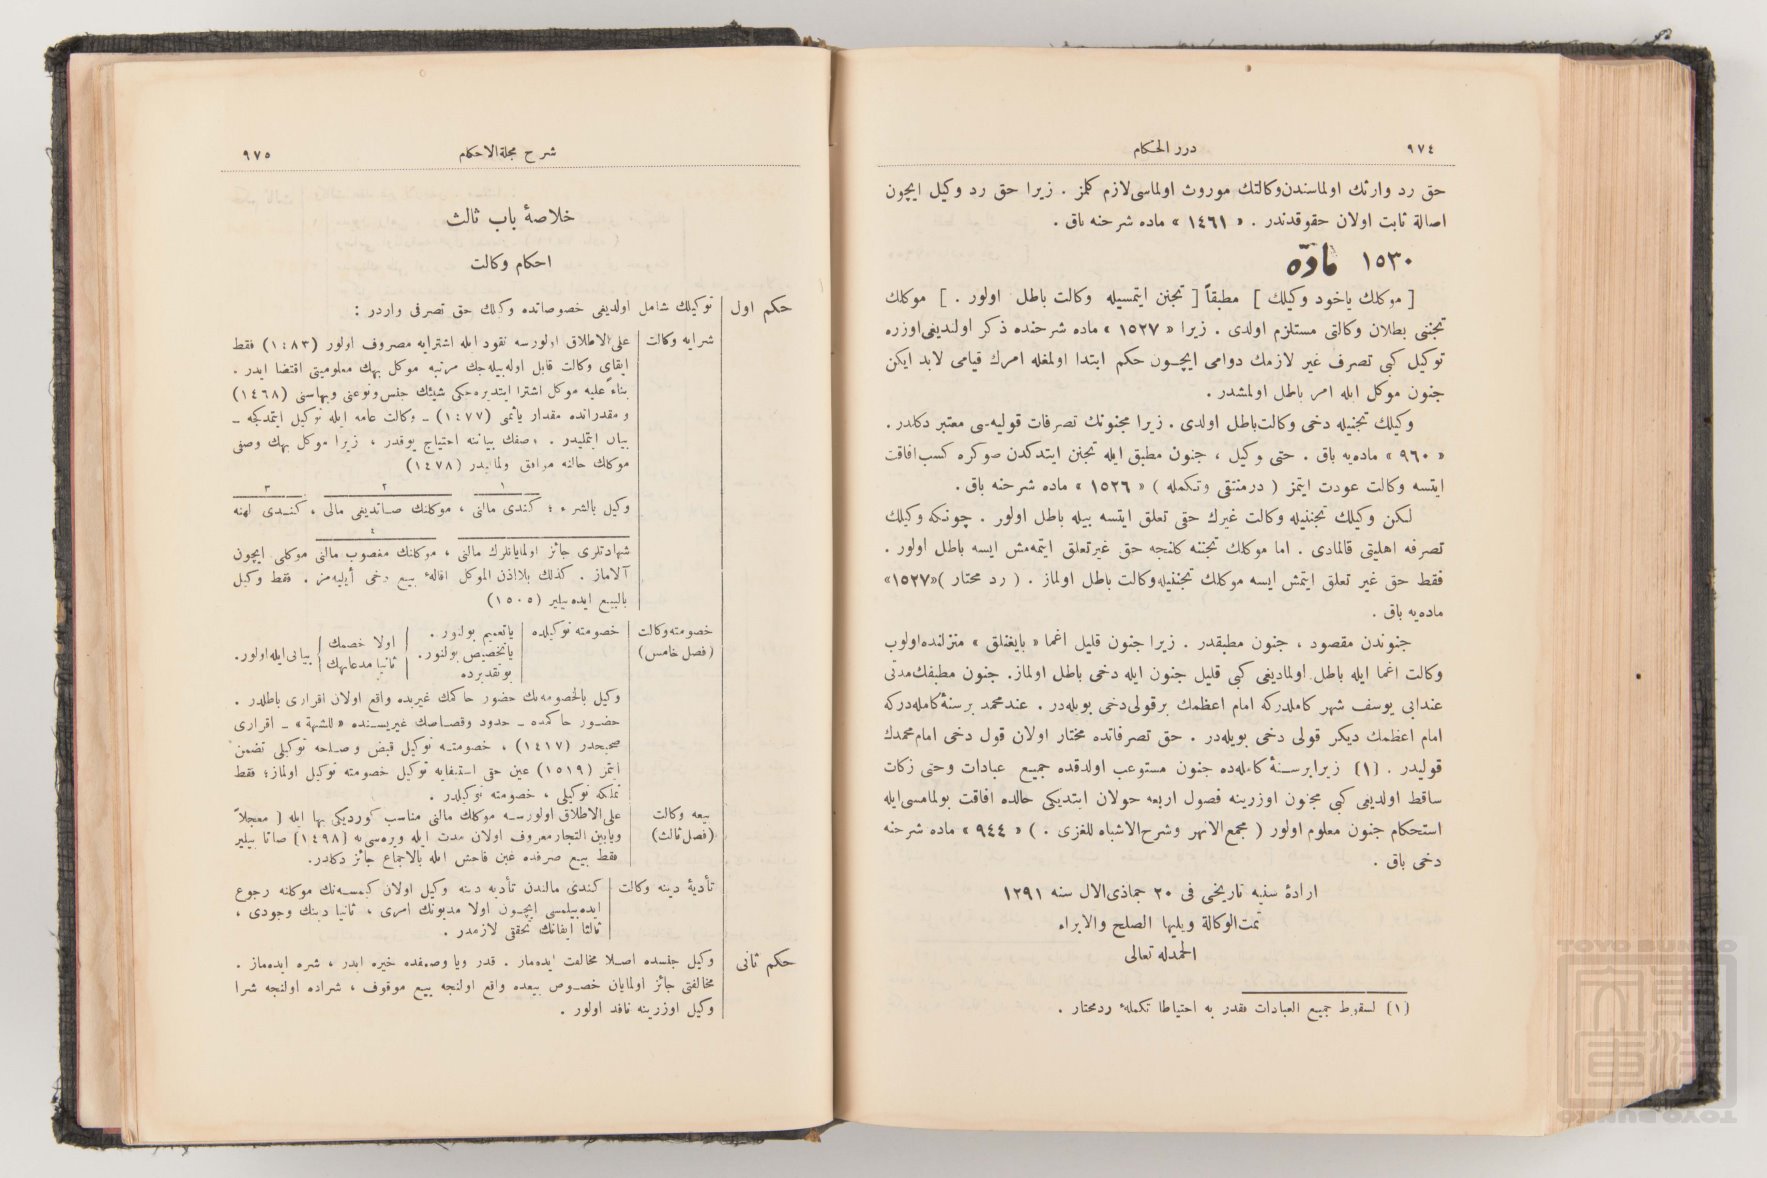 ٩٧٤
درر الحكام
حق رد وارثك اولماسندن وكالتك موروث اولماسى لازم كلمز . زيرا حق رد وكيل ايچون
اصالة ثابت اولان حقوقدندر . « ١٤٦١ » ماده شرحنه باق .
١٥٣٠ مادّه
[ موكلك ياخود وكيلك ] مطبقاً [ تجنن ايتمسيله وكالت باطل اولور . ] موكلك
تجننى بطلان وكالتى مستلزم اولدى . زيرا « ١٥٢٧ » ماده شرحنده ذكر اولنديغى اوزره
توكيل كبى تصرف غير لازمك دوامى ايچون حكم ابتدا اولمغله امرك قيامى لابد ايكن
جنون موكل ايله امر باطل اولمشدر .
وكيلك تجننيله دخى وكالت باطل اولدى . زيرا مجنونك تصرفات قوليه‌سى معتبر دكلدر .
« ٩٦٠ » ماده‌يه باق . حتى وكيل ، جنون مطبق ايله تجنن ايتدكدن صوكره كسب افاقت
ايتسه وكالت عودت ايتمز ( درمنتقى وتكمله ) « ١٥٢٦ » ماده شرحنه باق .
لكن وكيلك تجننيله وكالت غيرك حقى تعلق ايتسه بيله باطل اولور . چونكه وكيلك
تصرفه اهليتى قالمادى . اما موكلك تجننه كلنجه حق غير تعلق ايتمه‌مش ايسه باطل اولور .
فقط حق غير تعلق ايتمش ايسه موكلك تجننيله وكالت باطل اولماز . ( رد محتار )«١٥٢٧»
ماده‌يه باق .
جنوندن مقصود ، جنون مطبقدر . زيرا جنون قليل اغما « بايغنلق » منزلنده اولوب
وكالت اغما ايله باطل اولماديغى كبى قليل جنون ايله دخى باطل اولماز. جنون مطبقك مدتى
عندابى يوسف شهر كاملدركه امام اعظمك برقولى دخى بويله‌در . عندمحمد برسنهٔ كامله‌دركه
امام اعظمك ديكر قولى دخى بويله‌در . حق تصرفاتده مختار اولان قول دخى امام محمدك
قوليدر . (١) زيرا برسنهٔ كامله‌ده جنون مستوعب اولدقده جميع عبادات وحتى زكات
ساقط اولديغى كبى مجنون اوزرينه فصول اربعه حولان ايتديكى حالده افاقت بولمامسى ايله
استحكام جنون معلوم اولور ( مجمع الانهر وشرح الاشباه للغزى . ) « ٩٤٤ » ماده شرحنه
دخى باق .
ارادهٔ سنيه تاريخى فى ٢٠ جماذى الال سنه ١٢٩١
تمت الوكالة ويليها الصلح والابراء
الحمدلله تعالى
(١) لسقوط جميع العبادات فقدر به احتياطا تكملهٔ ردمحتار .
شرح مجلة الاحكام
٩٧٥
خلاصهٔ باب ثالث
احكام وكالت
حكم اول
توكيلك شامل اولديغى خصوصاتده وكيلك حق تصرفى واردر :
شرايه وكالت
على الاطلاق اولورسه نقود ايله اشترايه مصروف اولور (١٤٨٣) فقط
ايفاى وكالت قابل اوله‌بيله‌جك مرتبه موكل بهك معلوميتى اقتضا ايدر .
بناءً عليه موكل اشترا ايتديره‌جكى شيئك جنس ونوعنى وبهاسنى (١٤٦٨)
ومقدراتده مقدار ياثمنى (١٤٧٧) ـ وكالت عامه ايله توكيل ايتمدكجه ـ
بيان ايتمليدر . وصفك بياننه احتياج يوقدر ، زيرا موكل بهك وصفى
موكلك حالنه موافق اولمليدر (١٤٧٨)
١ ٢ ٣
وكيل بالشراء ؛ كندى مالنى ، موكلنك صاتديغى مالى ، كندى لهنه
٤
شهادتلرى جائز اولمايانلرك مالنى ، موكلنك مغصوب مالنى موكلى ايچون
آلاماز . كذلك بلا اذن الموكل اقالهٔ بيع دخى ايليه‌مز . فقط وكيل
بالبيع ايده‌بيلير (١٥٠٥)
خصومته وكالت
(فصل خامس)
خصومته توكيلده
ياتعميم بولنور .
ياتخصيص بولنور.
بوتقديرده
اولا خصمك
ثانيا مدعابهك
بيانى ايله اولور.
وكيل بالخصومه‌نك حضور حاكمك غيريده واقع اولان اقرارى باطلدر .
حضور حاكمده ـ حدود وقصاصك غيريسنده «للشبهة» ـ اقرارى
صحيحدر (١٤١٧) ، خصومته توكيل قبض وصلحه توكيلى تضمن
ايتمز (١٥١٩) عين حقى استيفايه توكيل خصومته توكيل اولماز؛ فقط
تملكه توكيلى ، خصومته توكيلدر .
بيعه وكالت
(فصل ثالث)
على الاطلاق اولورسه موكلك مالنى مناسب كورديكى بها ايله [ معجلاً
ويابين التجار معروف اولان مدت ايله ويره‌سى‌يه (١٤٩٨) صاتا بيلير
فقط بيع صرفده غبن فاحش ايله بالاجماع جائز دكلدر.
تأديهٔ دينه وكالت
كندى مالندن تأديه دينه وكيل اولان كيمسه‌نك موكلنه رجوع
ايده‌بيلمسى ايچون اولا مديونك امرى ، ثانيا دينك وجودى ،
ثالثا ايفانك تحققى لازمدر .
حكم ثانى
وكيل جنسده اصلا مخالفت ايده‌ماز . قدر ويا وصفده خيره ايدر ، شره ايده‌ماز .
مخالفتى جائز اولمايان خصوص بيعده واقع اولنجه بيع موقوف ، شراده اولنجه شرا
وكيل اوزرينه نافذ اولور .
TOYO BUNKO